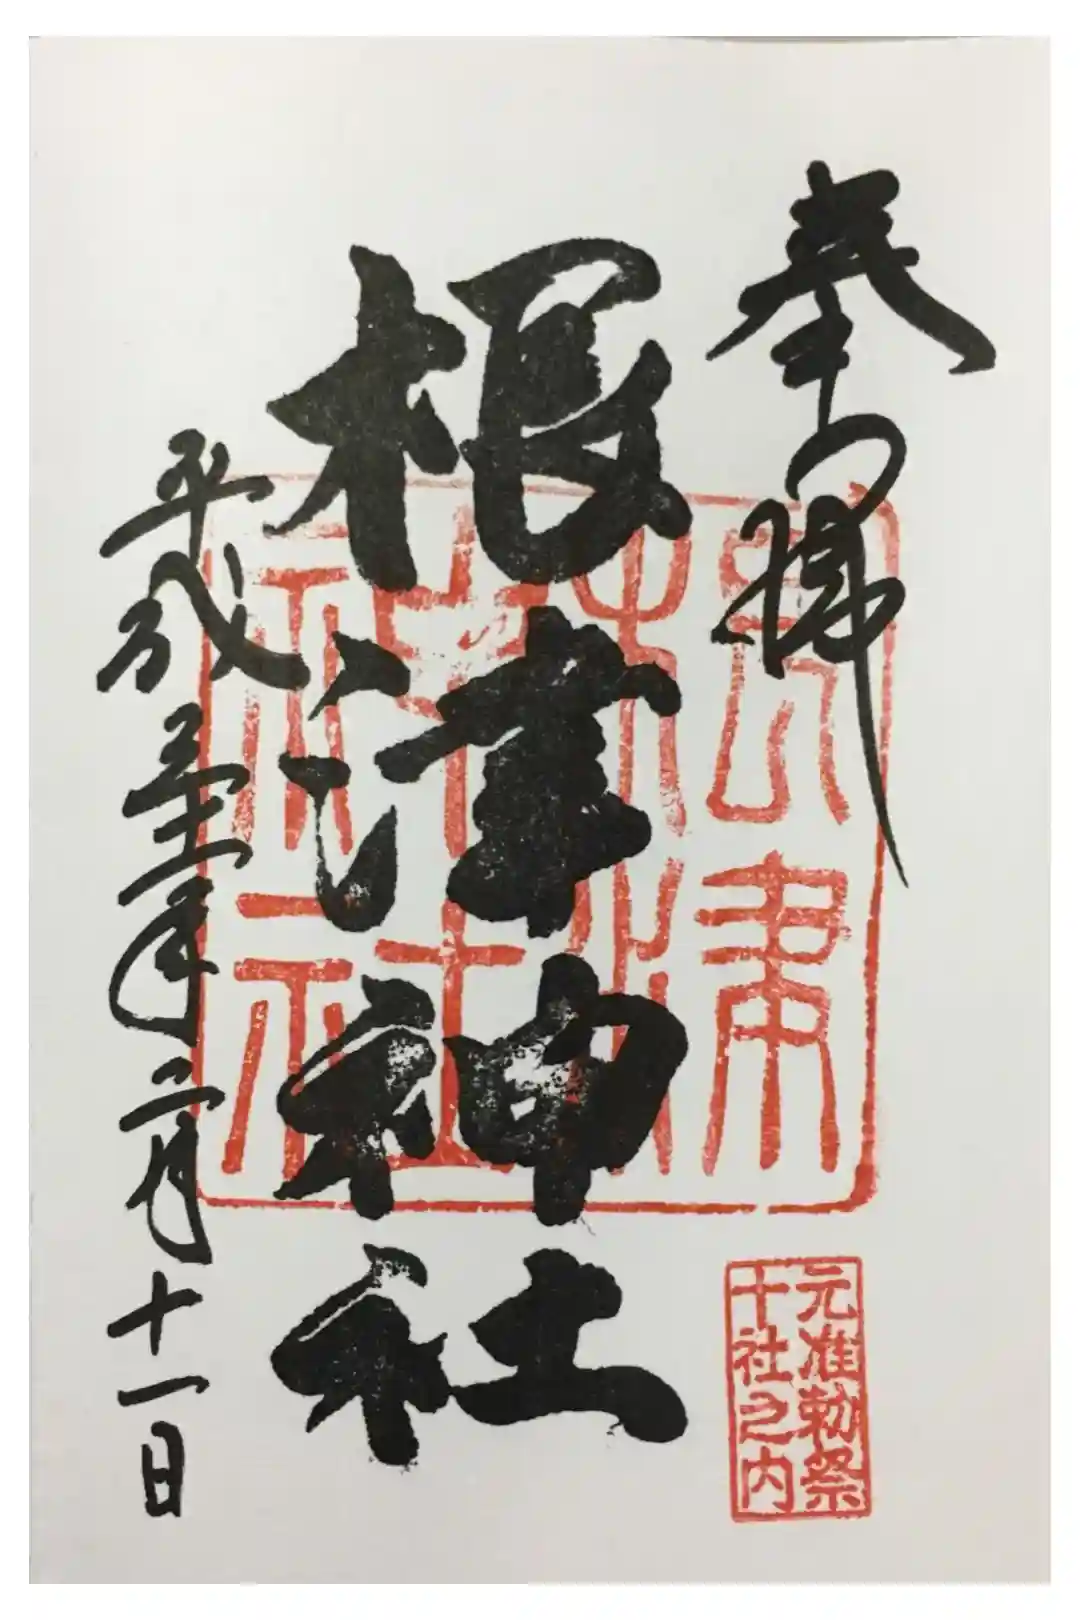 奉拝
根津神社
平成三十一年二月十一日
根津
神社
元准勅祭
十社之内